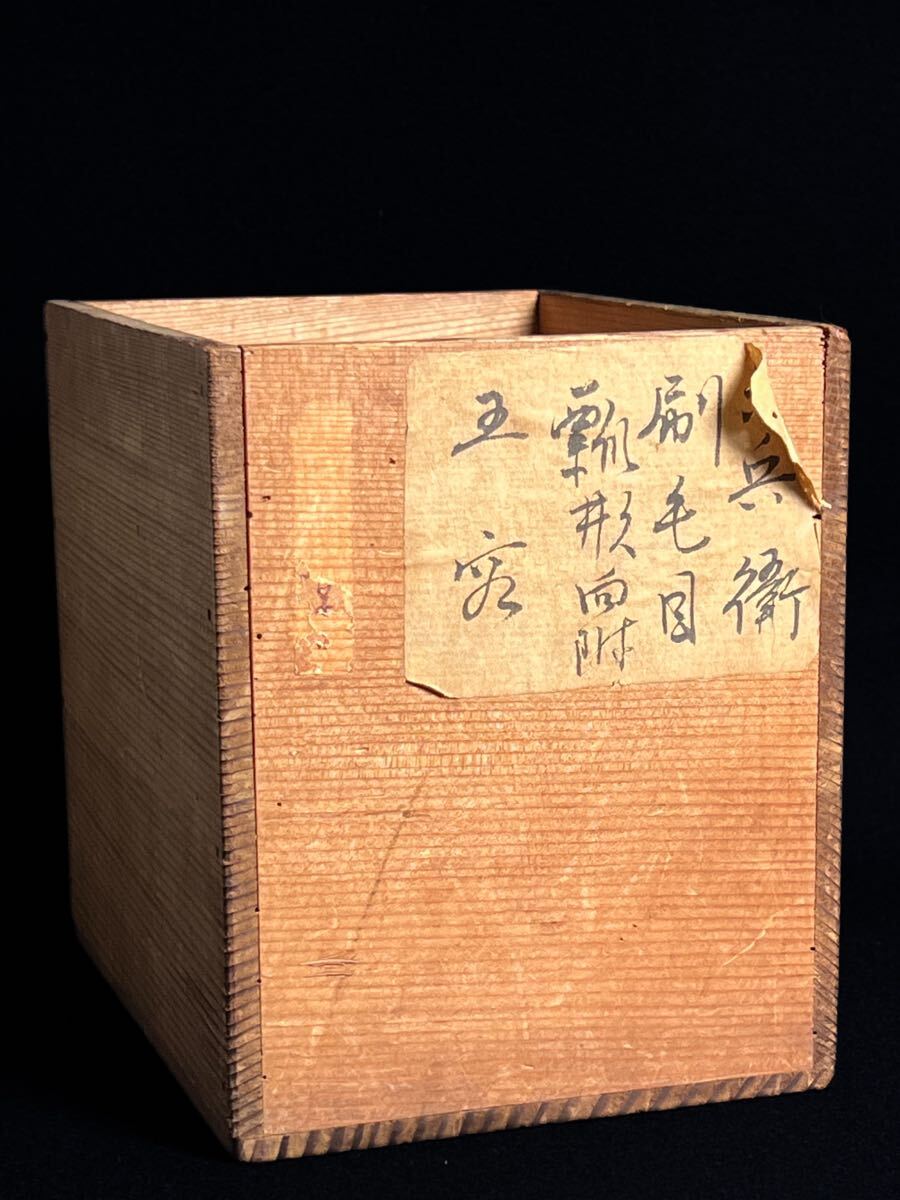 兵衛
刷毛目
瓢形向附
五客